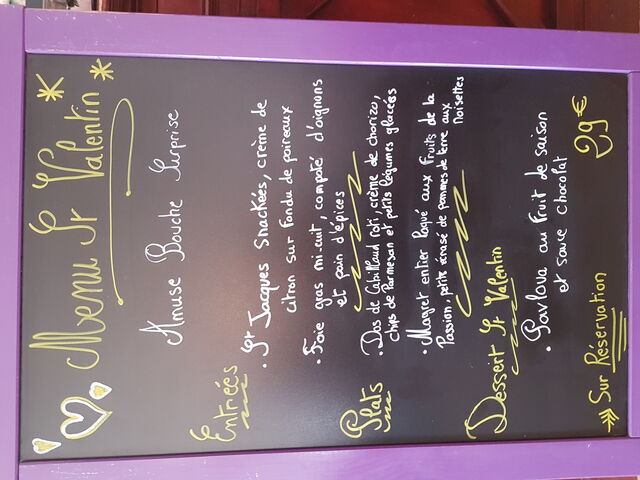 Menu St Valentin
Amuse Bouche Surprise
Entrées
• St Jacques Snackées, crème de
citron sur fondu de poireaux
• Foie gras mi-cuit, compoté d'oignons
et pain d'épices
Plats
• Dos de Cabillaud roti, crème de chorizo,
chips de Parmesan et petits légumes glacées
• Magret entier laqué aux Fruits de la
Passion, petits écrasé de pommes de terre aux
Noisettes
Dessert St Valentin
• Pavlova au fruit de saison
et sauce chocolat
29€
Sur Réservation